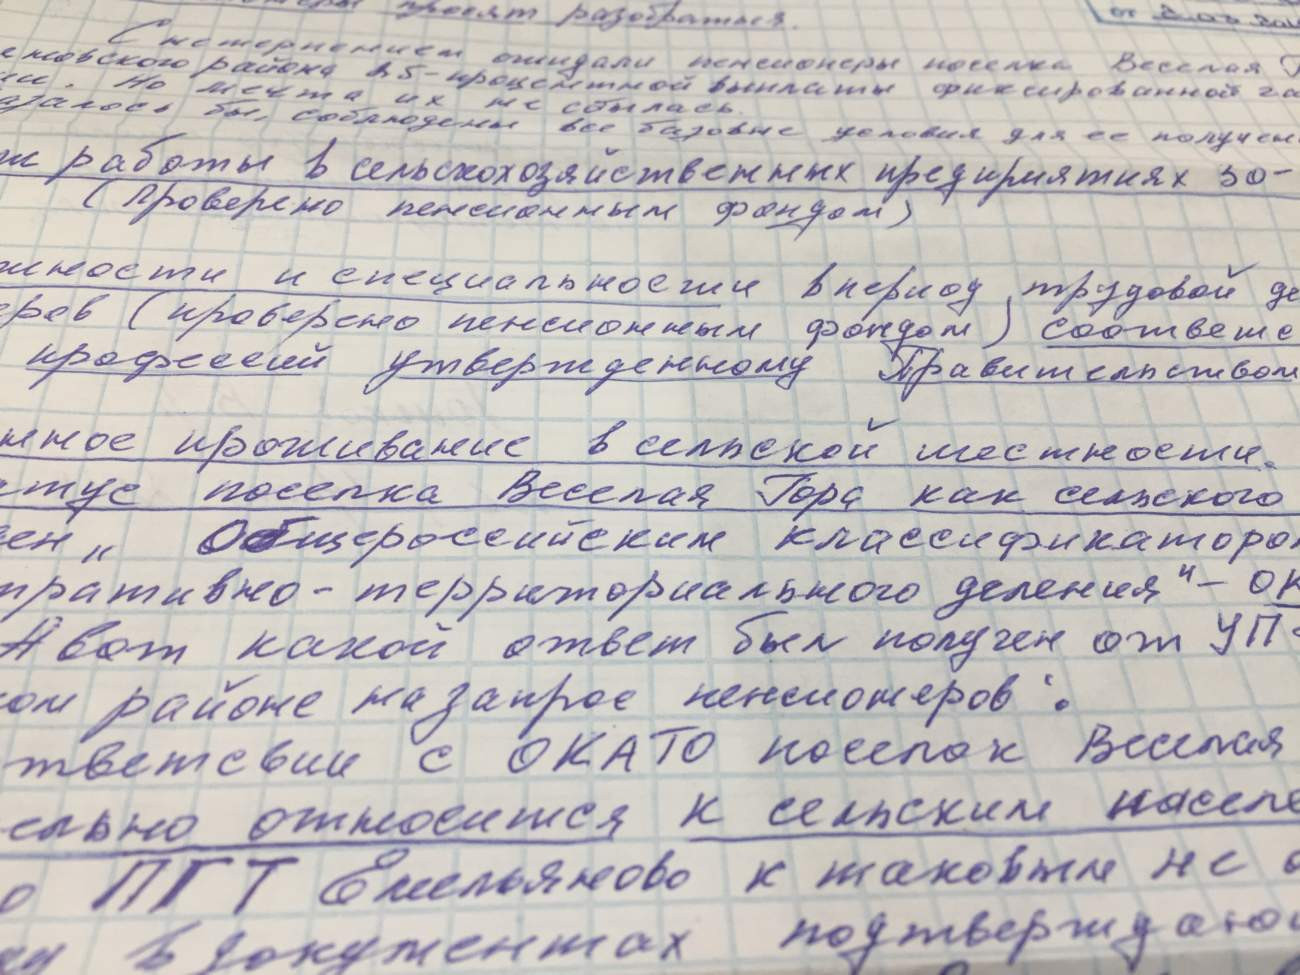 просят разобраться.
С нетерпением ожидали пенсионеры поселка Веселая Г
районе 25-процентной выплаты фиксированной
Но мечта их не сбылась.
бы, соблюдены все базовые условия для ее получен
ж работы в сельскохозяйственных предприятиях 30-
(проверено пенсионным фондом)
жности и специальности в период трудовой де
еров (проверено пенсионным фондом) соответс
профессий утвержденному Правительством
нное проживание в сельской местности.
атус поселка Веселая Гора как сельского
ден „ Общероссийским классификатором
тративно-территориального деления" - ОК
А вот какой ответ был получен от УП
ком районе на запрос пенсионеров:
тветсвии с ОКАТО поселок Веселая
ельно относится к сельским населе
о ПГТ Емельяново к таковым не о
в документах подтверждаю